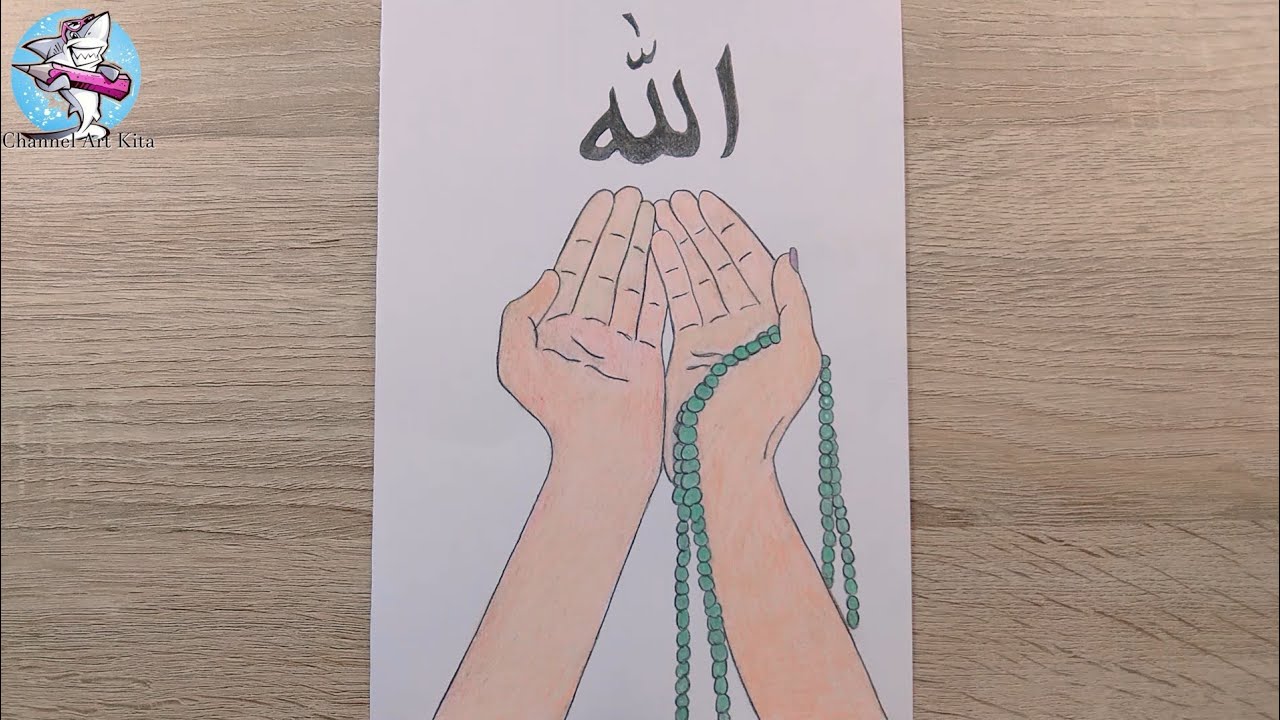 Channel Art Kita
الله